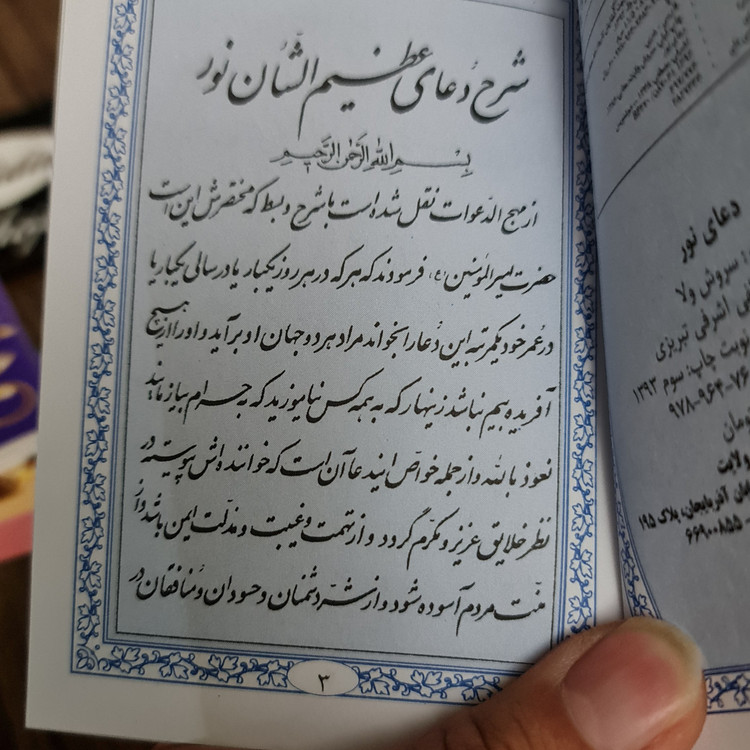 شرح دُعای عظیم الشّان نور
بِسْمِ اللهِ الرَّحْمٰنِ الرَّحِيمِ
از مهج الدّعوات نقل شده است با شرح و بسط که مختصرش این است
حضرت امیرالمؤمنین (ع) فرمودند که هر که در هر روز یکبار یا در سالی یکبار یا
در عمر خود یکمرتبه این دُعا را بخواند مراد هر دو جهان او برآید و او را از هیچ
آفریده بیم نباشد زینهار که به همه کس نیاموزید که به حرام بیاز مایند
نعوذ بالله و از جمله خواصّ ایندعا آن است که خواننده اش پیوسته در
نظر خلایق عزیز و مکرّم گردد و از تهمت و غیبت و مذلّت ایمن باشد و از
منّت مردم آسوده شود و از شرّ دشمنان و حسودان و منافقان در
۳
دعای نور
سروش ولا
اشرفی تبریزی
نوبت چاپ: سوم ۱۳۹۳
۹۷۸-۹۶۴-۷۶
ومان
ولایت
ان آذربایجان، پلاک ۱۹۵
۶۶۹۰۰۸۵۵